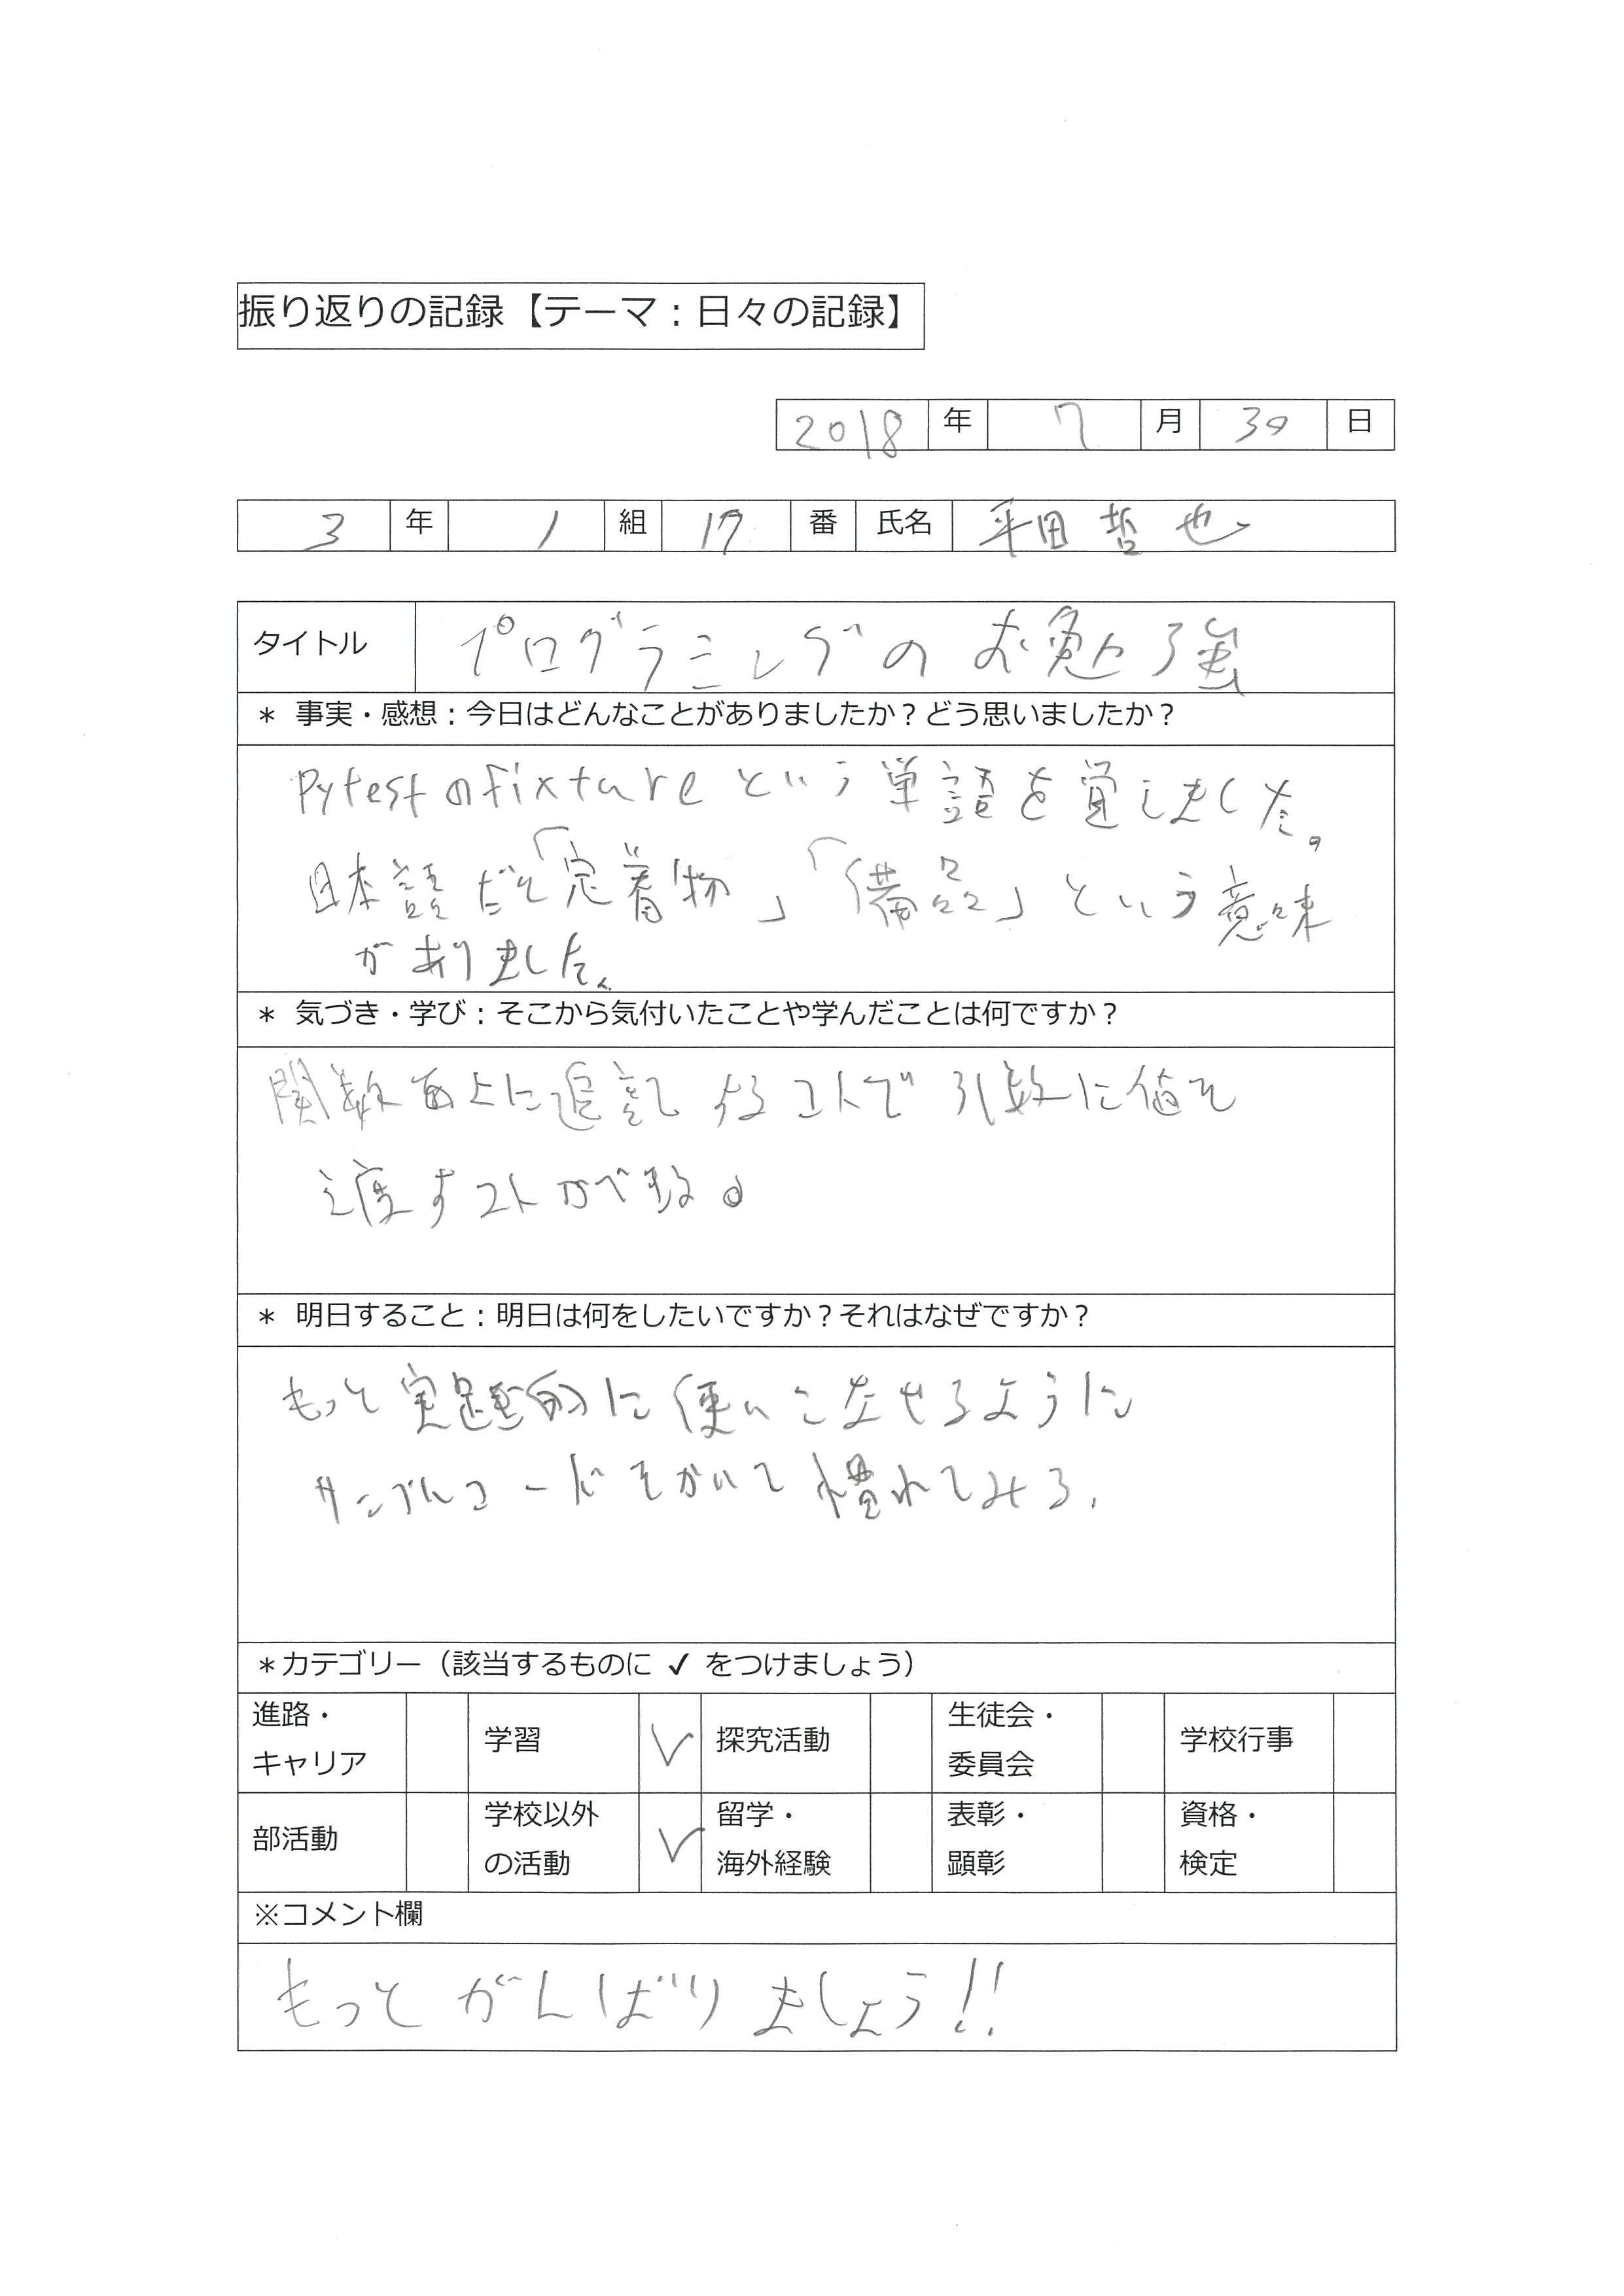 振り返りの記録【テーマ：日々の記録】
2018 年 7 月 30 日
3 年 1 組 17 番 氏名 平田 哲也
タイトル プログラミングのお勉強
＊ 事実・感想：今日はどんなことがありましたか？どう思いましたか？
Pytestのfixtureという単語を覚えました。
日本語だと「定着物」「備品」という意味
がありました。
＊ 気づき・学び：そこから気付いたことや学んだことは何ですか？
関数の上に追記するコトで引数に値を
渡すコトができる。
＊ 明日すること：明日は何をしたいですか？それはなぜですか？
もっと実践的に使いこなせるように
サンプルコードをかいて慣れてみる。
＊カテゴリー（該当するものに ✓ をつけましょう）
進路・キャリア 学習 ✓ 探究活動 生徒会・委員会 学校行事
部活動 学校以外の活動 ✓ 留学・海外経験 表彰・顕彰 資格・検定
※コメント欄
もっとがんばりましょう!!